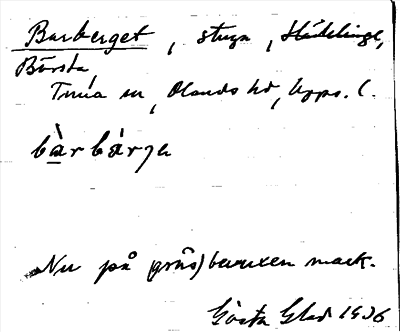 Barberget, stuga, Städelinge,
Börsta,
Tuna sn, Olands hd, Upps. l.
bàrbárje
Nu på (gräs)bevuxen mark.
Gösta Glad 1936